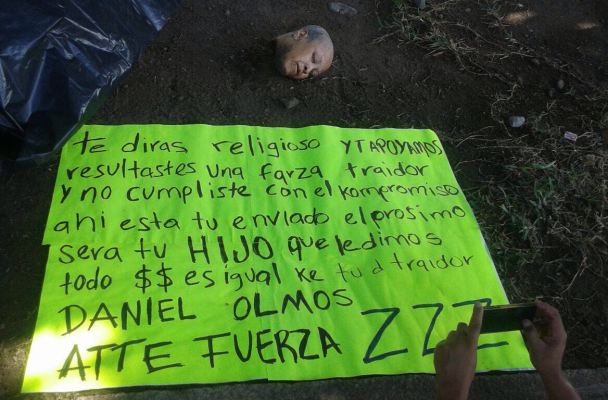 te diras religioso YTAPOYAMOS
resultastes una farza traidor
y no cumpliste con el kompromiso
ahi esta tu enviado el prosimo
sera tu HIJO que le dimos
todo $$ es igual ke tu d traidor
DANIEL OLMOS
ATTE FUERZA ZZZ